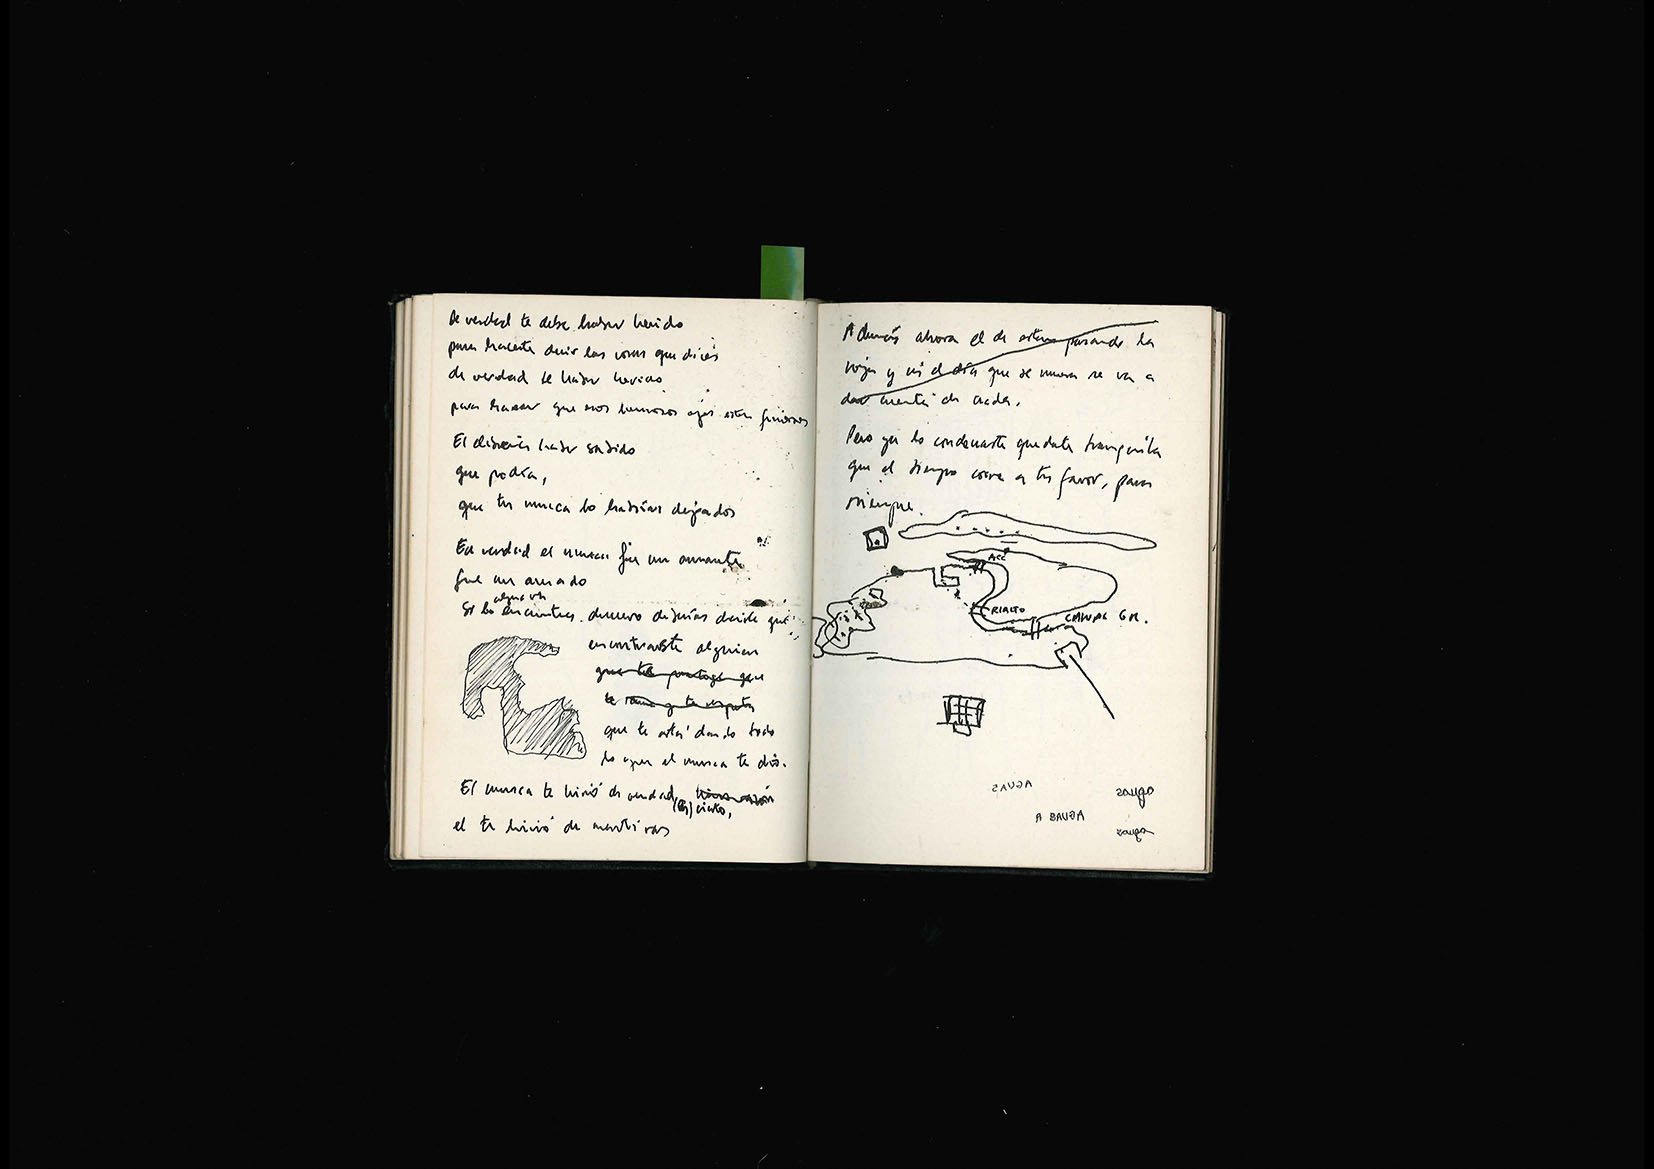 De verdad te debe haber herido
para hacerte decir las cosas que dices
de verdad te haber herido
para hacer que esos hermosos ojos estén furiosos
El debería haber sabido
que podía,
que tu nunca lo habrías dejado
En verdad el nunca fue un amante
fue un amado
alguna vez
Si lo encuentras. de nuevo decile que
encontraste alguien
que te protege que
te ama y te respeta
que te está dando todo
lo que el nunca te dio.
El nunca te hirió de verdad,
(es) cierto,
el te hirió de mentiras
Además ahora el de estar pasando la
vejez y el día que se muera se va a
dar cuenta de nada.
Pero ya lo condenaste quedate tranquila
que el tiempo corre a tu favor, para
siempre.
ACC
RIALTO
CANAL GR.
AGUAS
aguas
AGUAS A
aguas